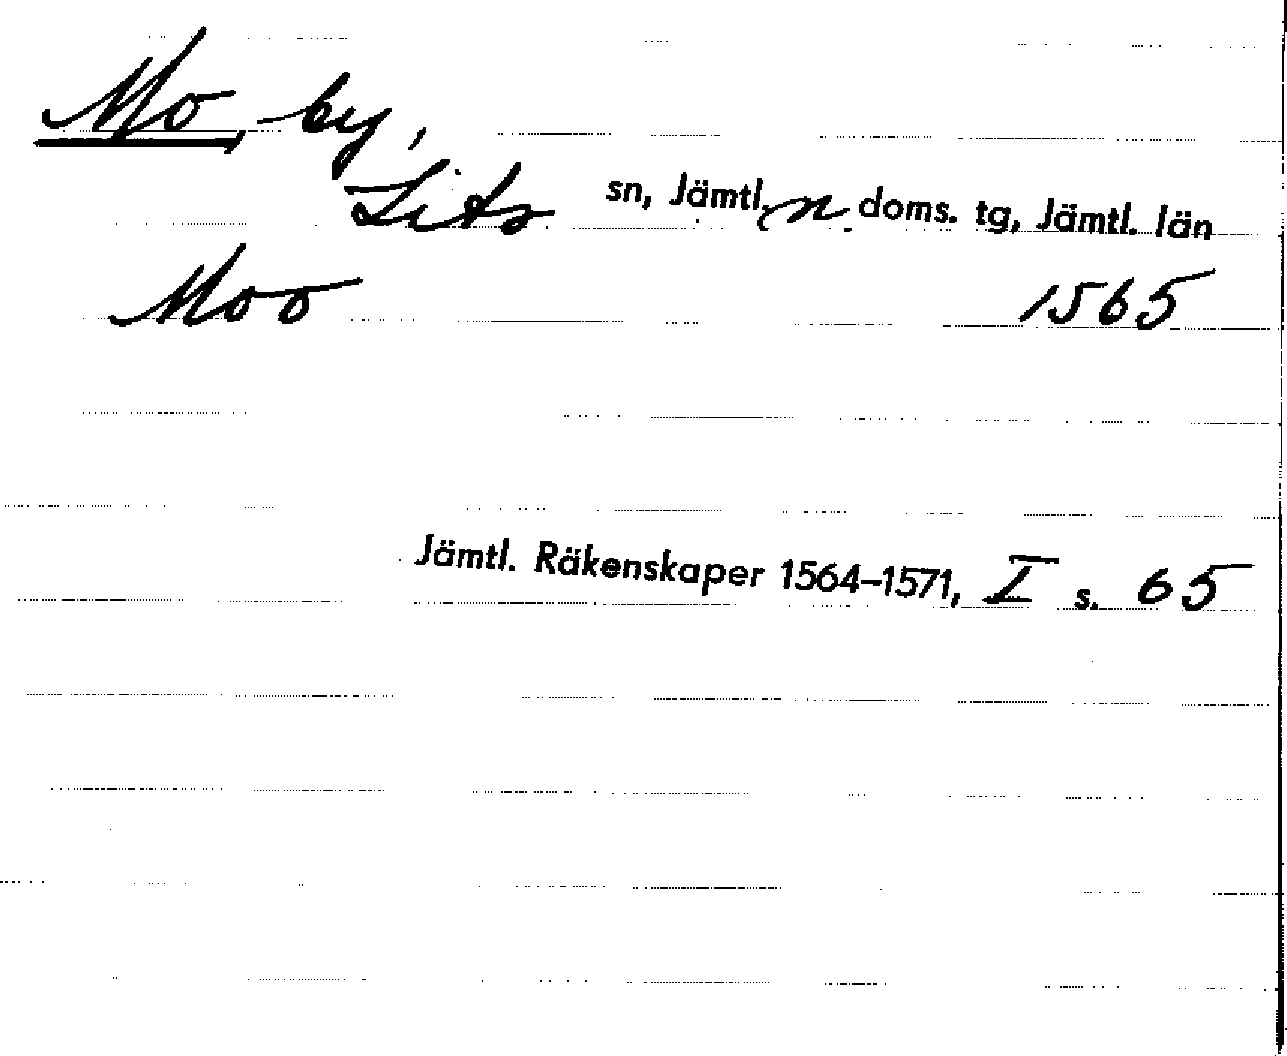 Mo, by,
Lits sn, Jämtl. n. doms. tg, Jämtl. län
Moo 1565
Jämtl. Räkenskaper 1564–1571, I s. 65